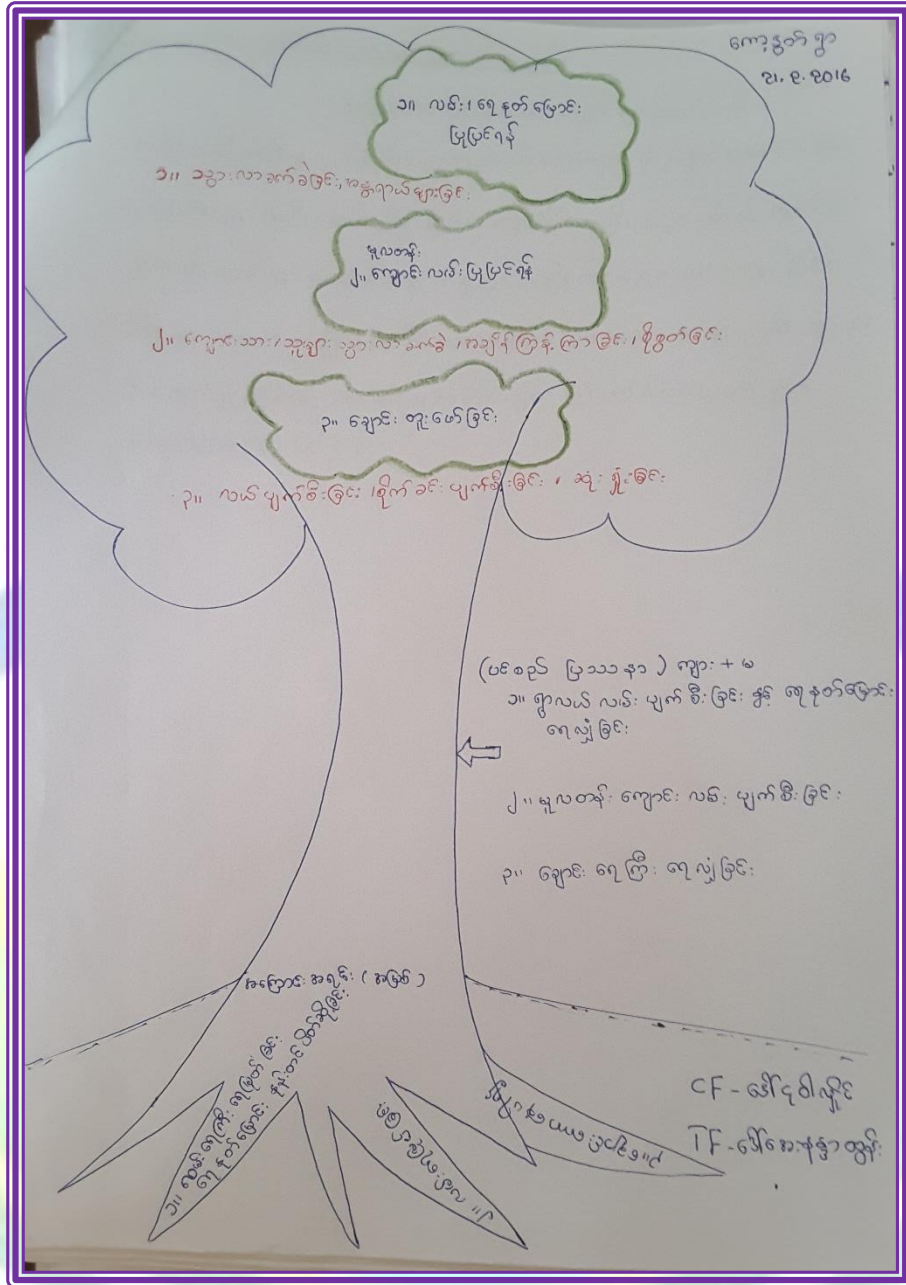 ကော့နွတ်ရွာ
၁။ လမ်း၊ ရေနုတ်မြောင်း
ပြုပြင်ရန်
၁။ သွားလာခက်ခဲခြင်း၊ အန္တရာယ်များခြင်း
မူလတန်း
၂။ ကျောင်းလမ်းပြုပြင်ရန်
၂။ ကျောင်းသား/သူများ သွားလာခက်ခဲ၊ အချိန်ကြန့်ကြာခြင်း၊ စိုစွတ်ခြင်း
၃။ ချောင်း တူးဖော်ခြင်း
၃။ လယ်ပျက်စီးခြင်း၊ စိုက်ခင်းပျက်စီးခြင်း၊ ဆုံးရှုံးခြင်း
(ပင်စည် ပြဿနာ) ကျား + မ
၁။ ရွာလယ် လမ်း ပျက်စီးခြင်း နှင့် ရေနုတ်မြောင်း
ရေလျှံခြင်း
၂။ မူလတန်း ကျောင်း လမ်း ပျက်စီးခြင်း
၃။ ချောင်း ရေကြီး ရေလျှံခြင်း
အကြောင်းအရင်း (အမြစ်)
၁။ လမ်း ရေကြီး ရေမြုပ်ခြင်း
ရေနုတ်မြောင်း နုန်းတင် ပိတ်ဆို့ခြင်း
၂။ လမ်း
၃။ ချောင်း
CF - ဒေါ်ဥမ္မါလှိုင်
TF - ဒေါ်အေးနန္ဒာထွန်း